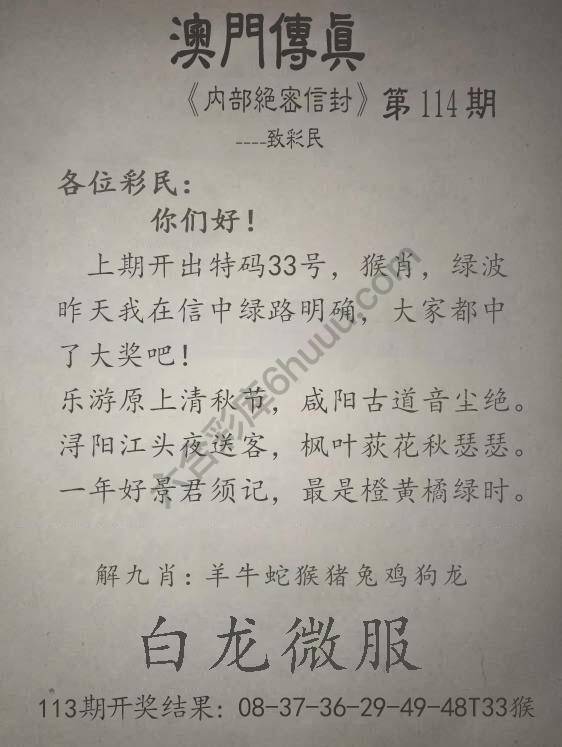 澳門傳眞
《内部絕密信封》第114期
----致彩民
各位彩民：
你们好！
上期开出特码33号，猴肖，绿波
昨天我在信中绿路明确，大家都中
了大奖吧！
乐游原上清秋节，咸阳古道音尘绝。
浔阳江头夜送客，枫叶荻花秋瑟瑟。
一年好景君须记，最是橙黄橘绿时。
六合彩库6huuu.com
解九肖：羊牛蛇猴猪兔鸡狗龙
白龙微服
113期开奖结果：08-37-36-29-49-48T33猴